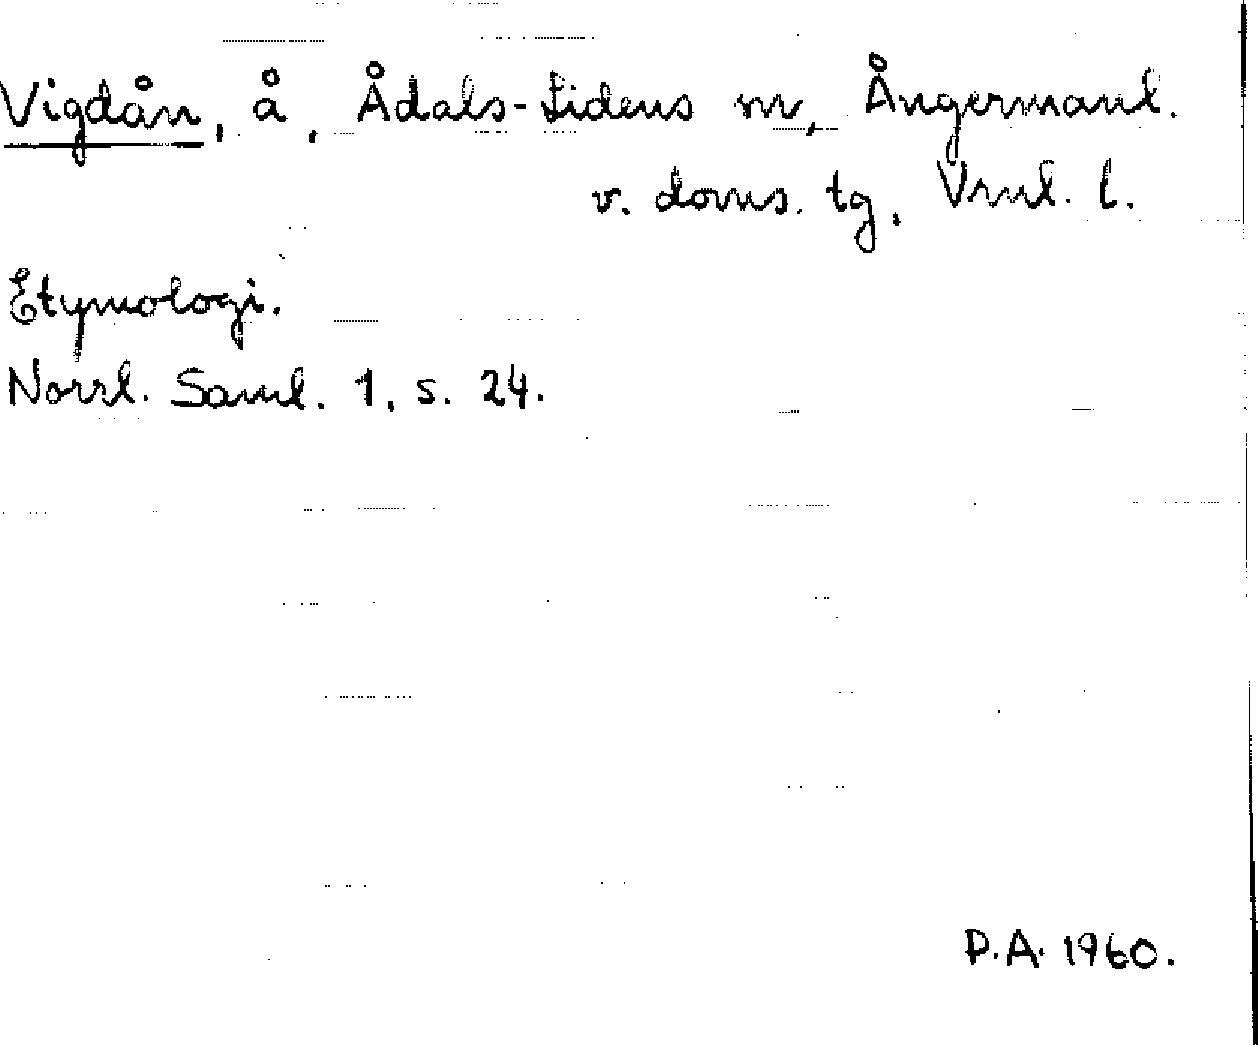 Vigdån, å, Ådals-Lidens sn, Ångermanl.
v. doms. tg, Vrnl. l.
Etymologi.
Norrl. Saml. 1, s. 24.
P.A. 1960.